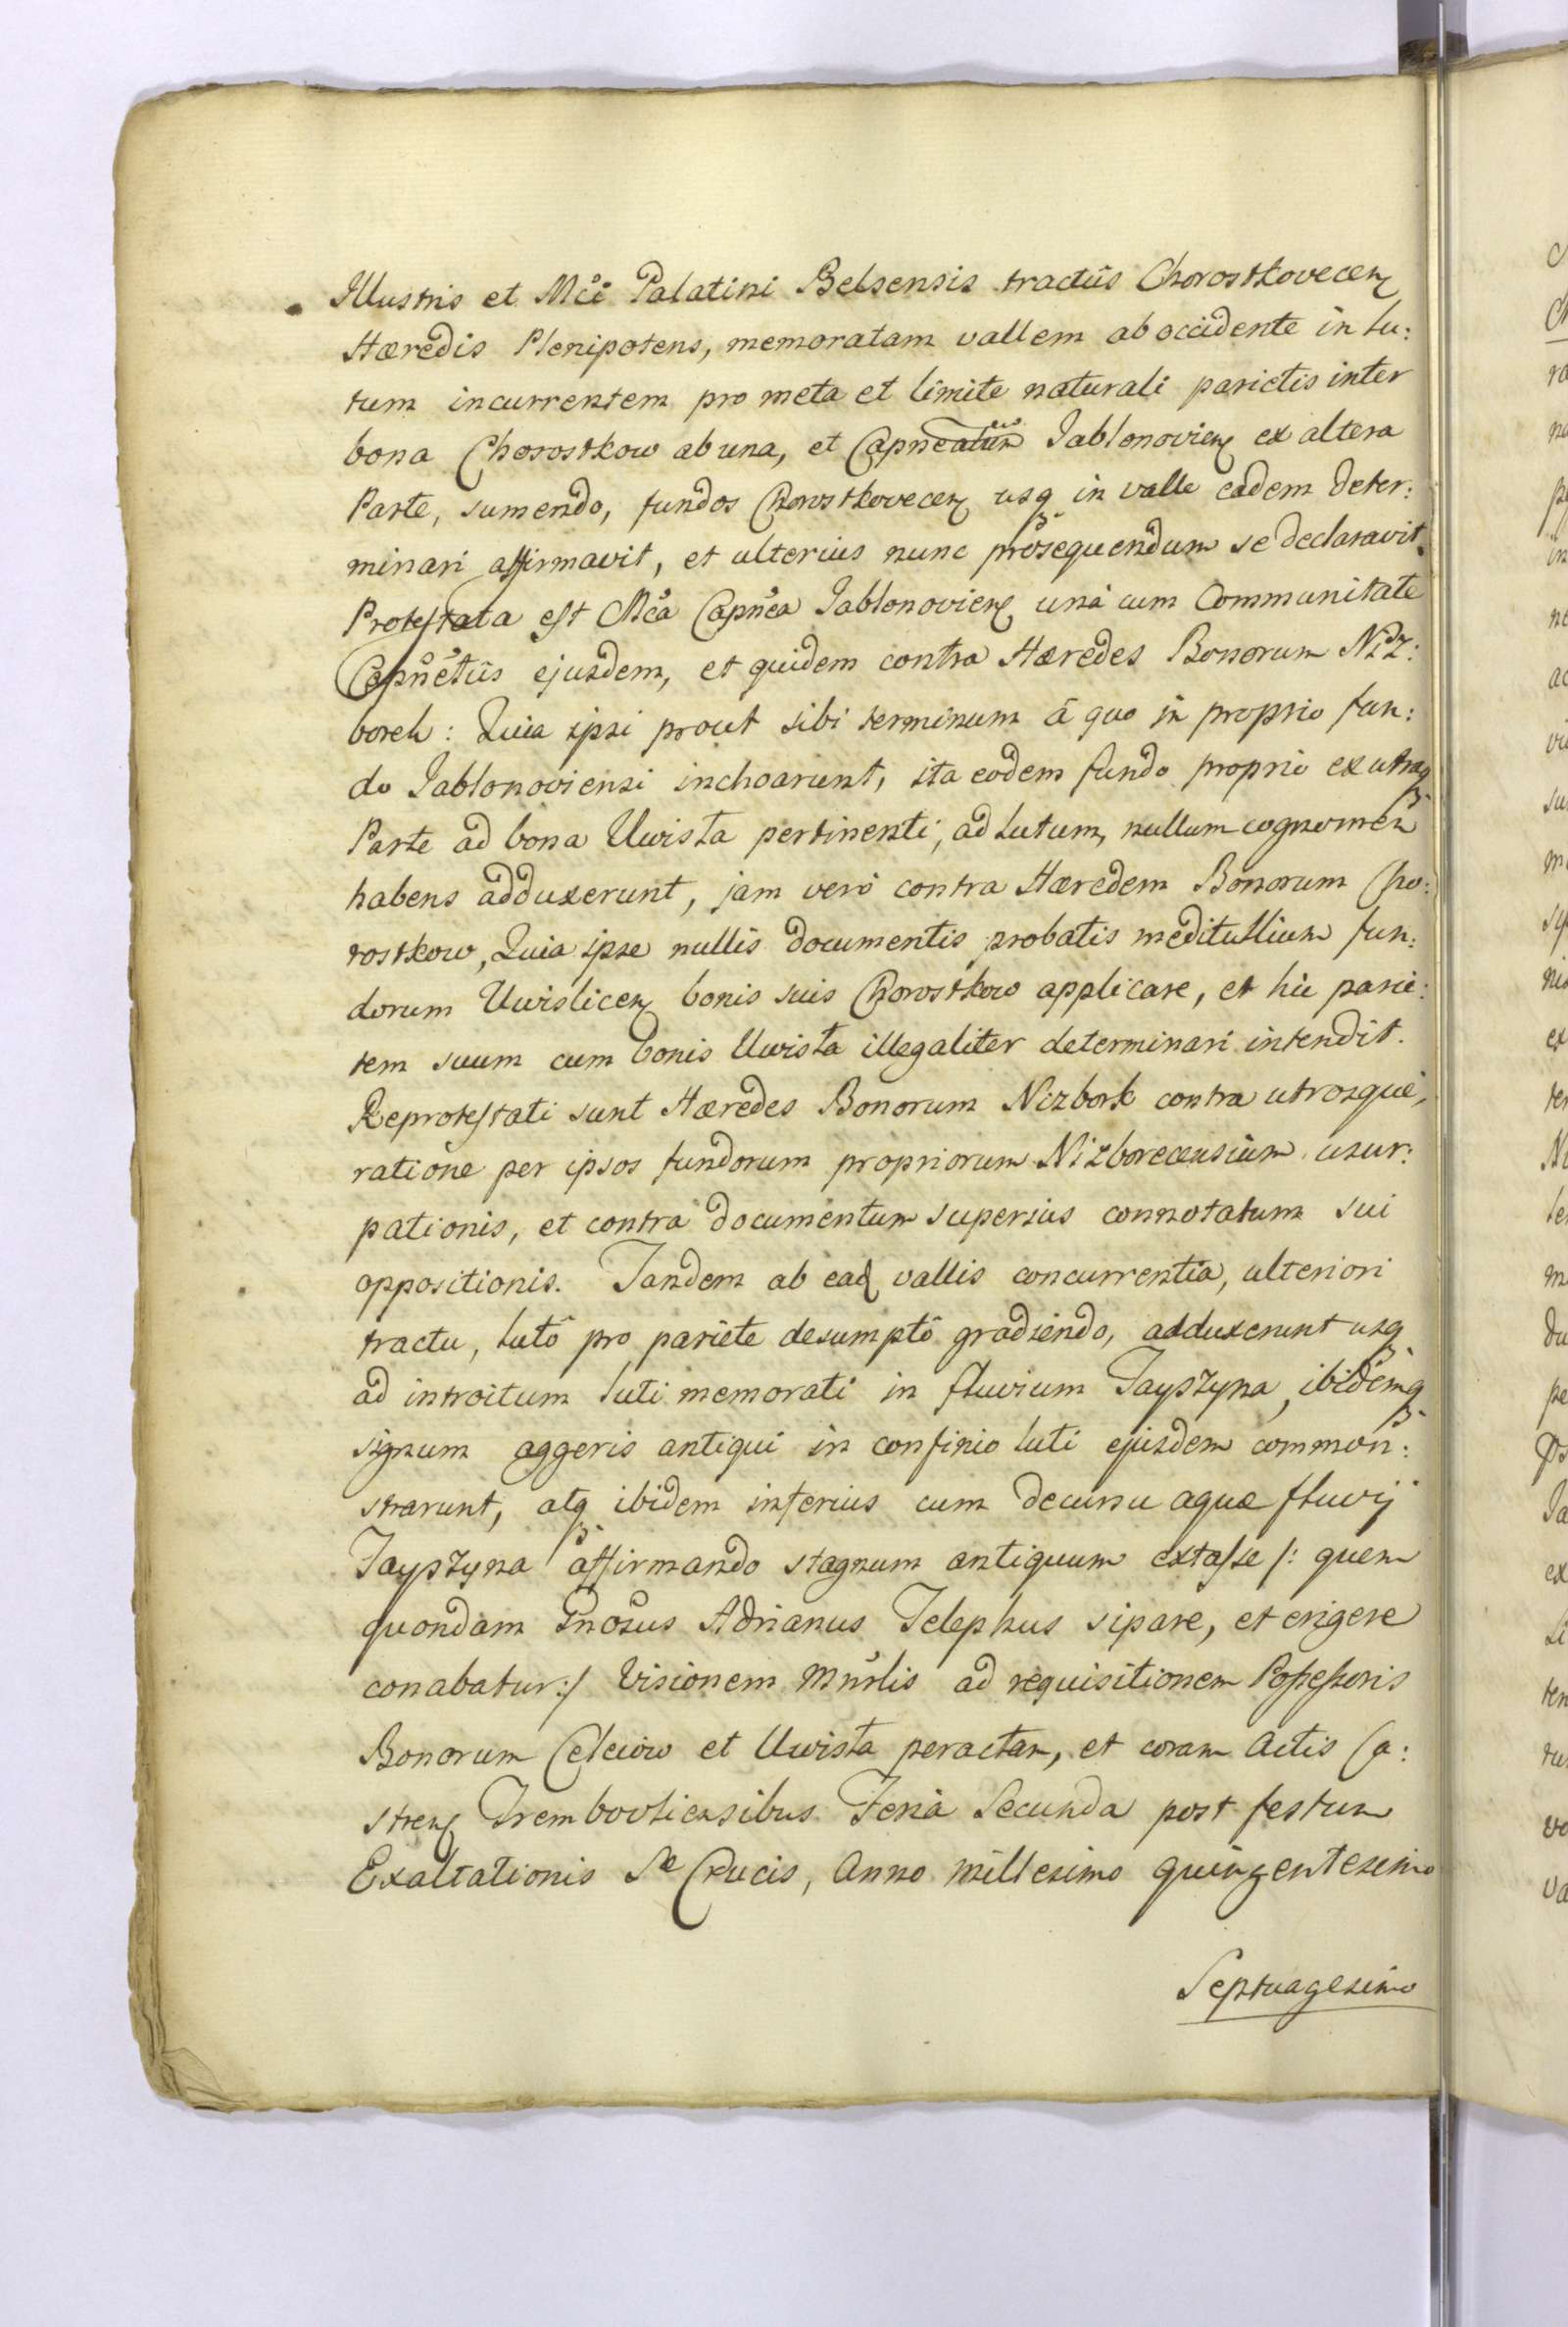 Illustris et Mci Palatini Belsensis tractûs Chorostkovecen
Hæredis Plenipotens, memoratam vallem ab occidente in lu:
tum incurrentem pro meta et limite naturali parietis inter
bona Chorostkow ab una, et Jablonovien ex altera
Parte, sumendo, fundos Chorostkovecen usq in valle eadem deter:
minari affirmavit, et ulterius nunc prosequendum se declaravit.
Protestata est Mca Capnea Jablonovien unà cum Communitate
Capnetûs ejusdem, et quidem contra Hæredes Bonorum Niż:
boreh: Quia ipsi prout sibi terminum à quo in proprio fun:
do Jablonoviensi inchoarunt, ita eodem fundo proprio ex utraq
Parte ad bona Uwisła pertinenti, ad lutum, nullum cognomen
habens adduxerunt, jam verò contra Hæredem Bonorum Cho:
rostkow, Quia ipse nullis documentis probatis meditullium fun:
dorum Uwislicen bonis suis Chorostkow applicare, et hic parie:
tem suum cum bonis Uwisła illegaliter determinari intendit.
Reprotestati sunt Hæredes Bonorum Nizbork contra utrosque,
ratione per ipsos fundorum propriorum Nizborecensium usur:
pationis, et contra documentum superius connotatum sui
oppositionis. Tandem ab ead vallis concurrentia, ulteriori
tractu, lutô pro pariete desumptô gradiendo, adduxerunt usq
ad introitum luti memorati in fluvium Tayszyna, ibidemq
signum aggeris antiqui in confinio luti ejusdem common:
strarunt, atq ibidem inferius cum decursu aquæ fluvij
Tayszyna affirmando stagnum antiquum extasse /: quem
quondam Gnosus Adrianus Telephus sipare, et erigere
conabatur:/ Visionem Mnrlis ad requisitionem Possessoris
Bonorum Celeiow et Uwisła peractam, et coram Actis Ca:
stren Trembovliensibus Feria Secunda post festum
Exaltationis Se Crucis, Anno millesimo quingentesimo
Septuagesimo